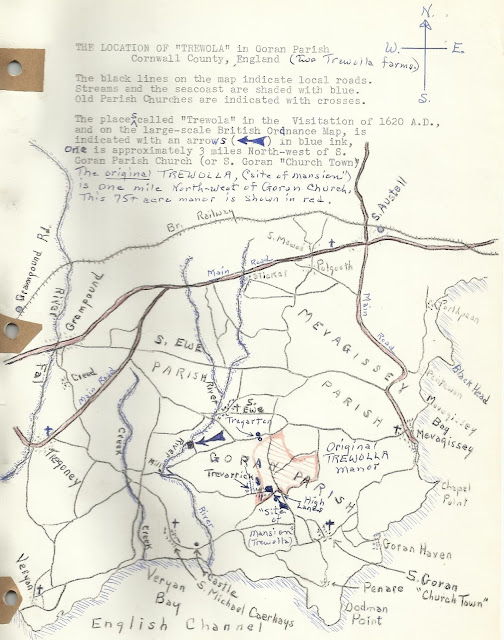 N.
W. E.
S.
THE LOCATION OF "TREWOLA" in Goran Parish
Cornwall County, England (Two Trewolla farms.)
The black lines on the map indicate local roads.
Streams and the seacoast are shaded with blue.
Old Parish Churches are indicated with crosses.
The places called "Trewola" in the Visitation of 1620 A.D.,
and on the large-scale British Ordnance Map, is
indicated with an arrows ( ) in blue ink,
one is approximately 3 miles North-west of S.
Goran Parish Church (or S. Goran "Church Town")
The original TREWOLLA, (site of mansion")
is one mile North-west of Goran Church.
This 75± acre manor is shown in red.
S. Austell
Br. Railway
Grampound Rd.
S. Mewas
Main Road
Sticker
Polgooth
River
Grampound
Porthpean
Main Road
MEVAGISSEY
PARISH
Black Head
S. EWE
PARISH
Fal
Creed
Main Road
River
Pentewan
Mevagissey
Bay
Mevagissey
S. Ewe
Tregarten
Creek
Tregoney
River
Original
TREWOLLA
manor
GORAN PARISH
Trevarrick
High
Lanes
Chapel
Point
River
"Site
of
mansion"
(Trewolla)
Creek
Goran Haven
Castle
S. Michael Caerhays
S. Goran
"Church Town"
Veryan
Veryan
Bay
Penare
Dodman
Point
English Channel